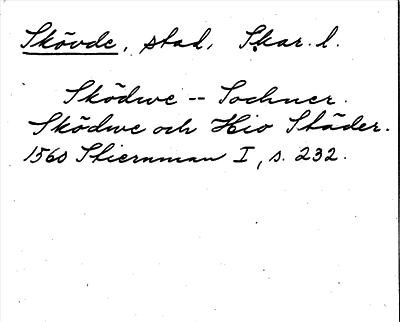 Skövde, stad, Skar. l.
Sködwe -- Sochner.
Sködwe och Hio Städer.
1560 Stiernman I, s. 232.